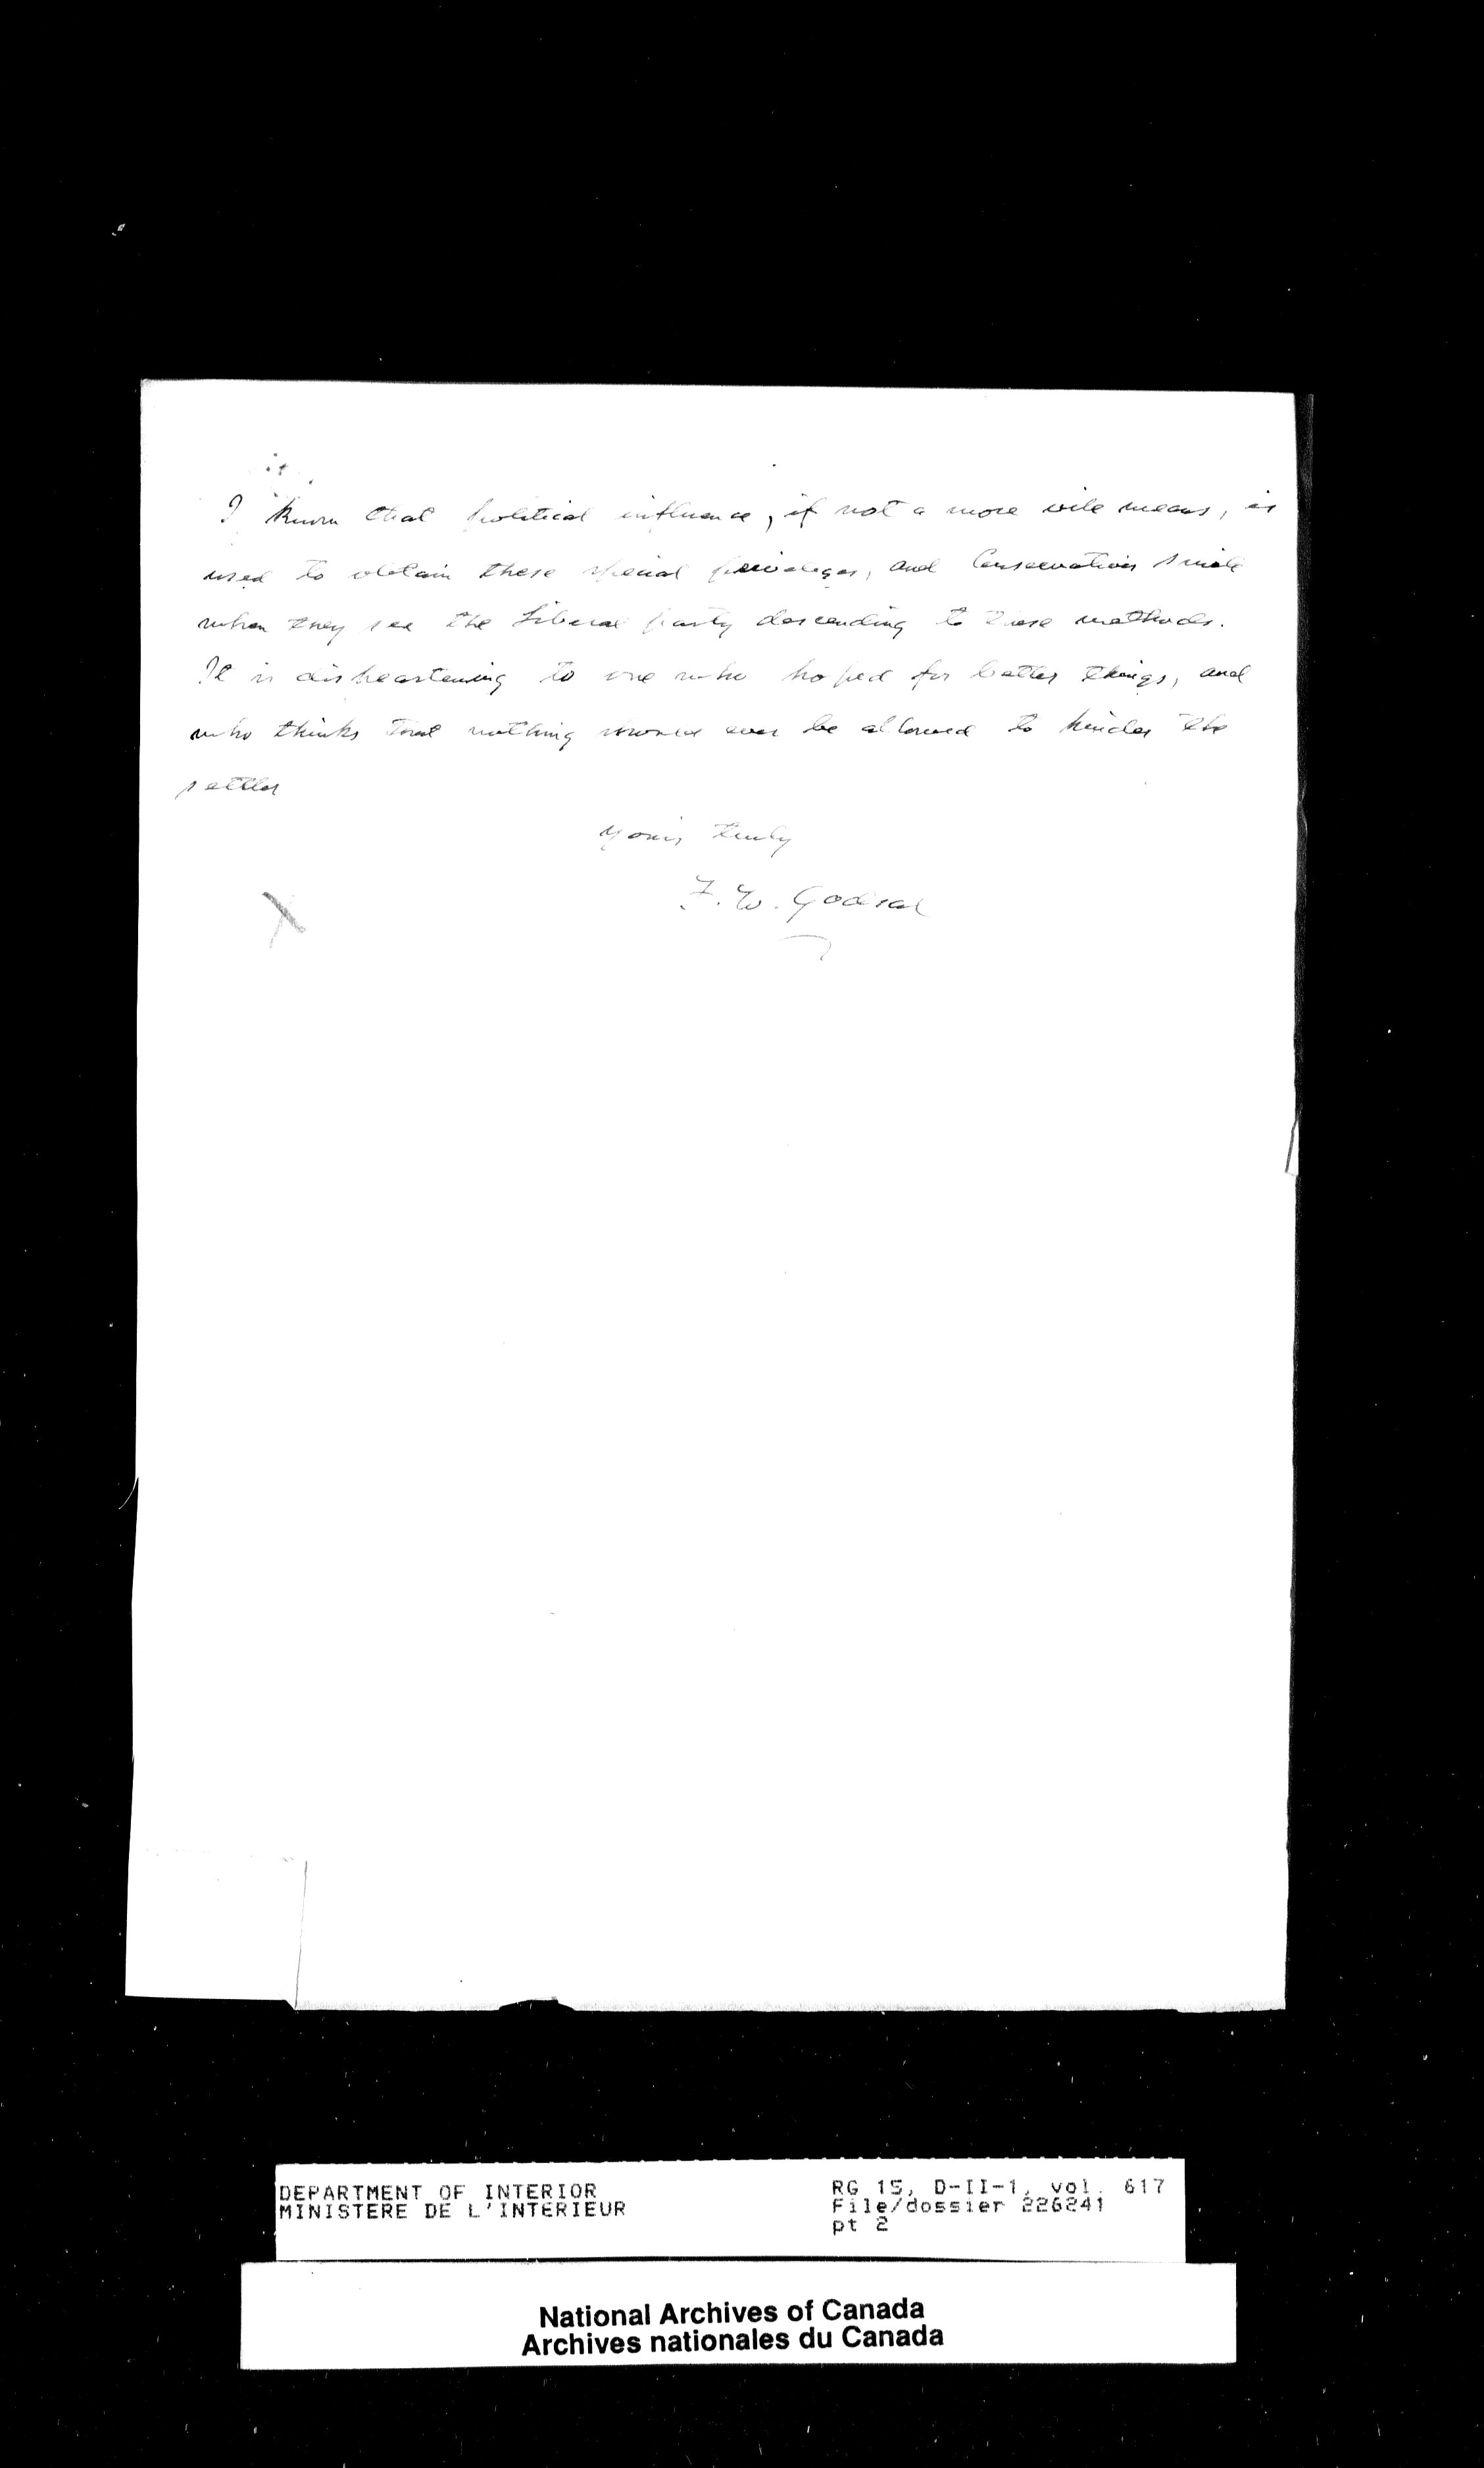 I know that political influence, if not a more vile means, is
used to obtain these special privileges, and Conservatives smile
when they see the Liberal party descending to these methods.
It is disheartening to one who hoped for better things, and
who thinks that nothing should ever be allowed to hinder the
settler
Yours truly
F. W. Godsal
DEPARTMENT OF INTERIOR
MINISTERE DE L'INTERIEUR
RG 15, D-II-1, vol. 617
File/dossier 226241
pt 2
National Archives of Canada
Archives nationales du Canada